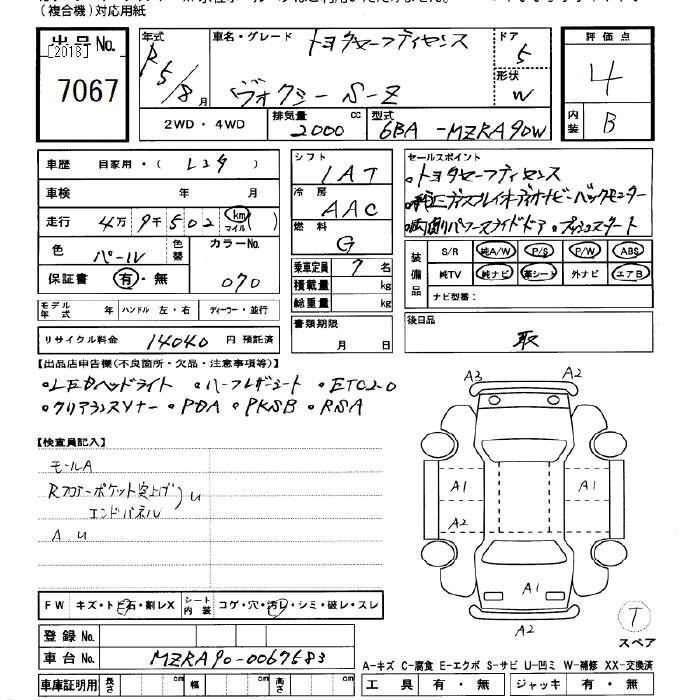 (複合機)対応用紙
出品No. 年式 車名・グレード トヨタセーフティセンス ドア 5 評価点
[2013]
7067 R5/8月 ヴォクシー S-Z 形状 W 4
2WD・4WD 排気量 2000 cc 型式 6BA-MZRA90W 内装 B
車歴 自家用・( レンタ )
車検 年 月
走行 4万9千502 km マイル )
色 パール 色替 カラーNo. 070
保証書 有・無
モデル年式 年 ハンドル 左・右 ディーラー・並行
リサイクル料金 14040 円 預託済
シフト IAT
冷房 AAC
燃料 G
乗車定員 7 名
積載量 kg
総重量 kg
書類期限 月 日
セールスポイント
・トヨタセーフティセンス
・純正ディスプレイオーディオナビ・バックモニター
・両側パワースライドドア ・プッシュスタート
装備品 S/R 純A/W P/S P/W ABS
純TV 純ナビ 革シート 外ナビ エアB
ナビ型番:
後日品
取
【出品店申告欄(不良箇所・欠品・注意事項等)】
・LEDヘッドライト ・ハーフレザーシート ・ETC2.0
・クリアランスソナー ・PDA ・PKSB ・RSA
【検査員記入】
モールA
Rフロアーポケット突上げ
エンドパネル U
A U
A3 A2
A1 A1
A2
A1
A2
T
スペア
FW キズ・トビ石・割レX シート内装 コゲ・穴・汚レ・シミ・破レ・スレ
登録No.
車台No. MZRA90-0067683
車庫証明用 長さ cm 幅 cm 高さ cm
A-キズ C-腐食 E-エクボ S-サビ U-凹ミ W-補修 XX-交換済
工具 有・無 ジャッキ 有・無